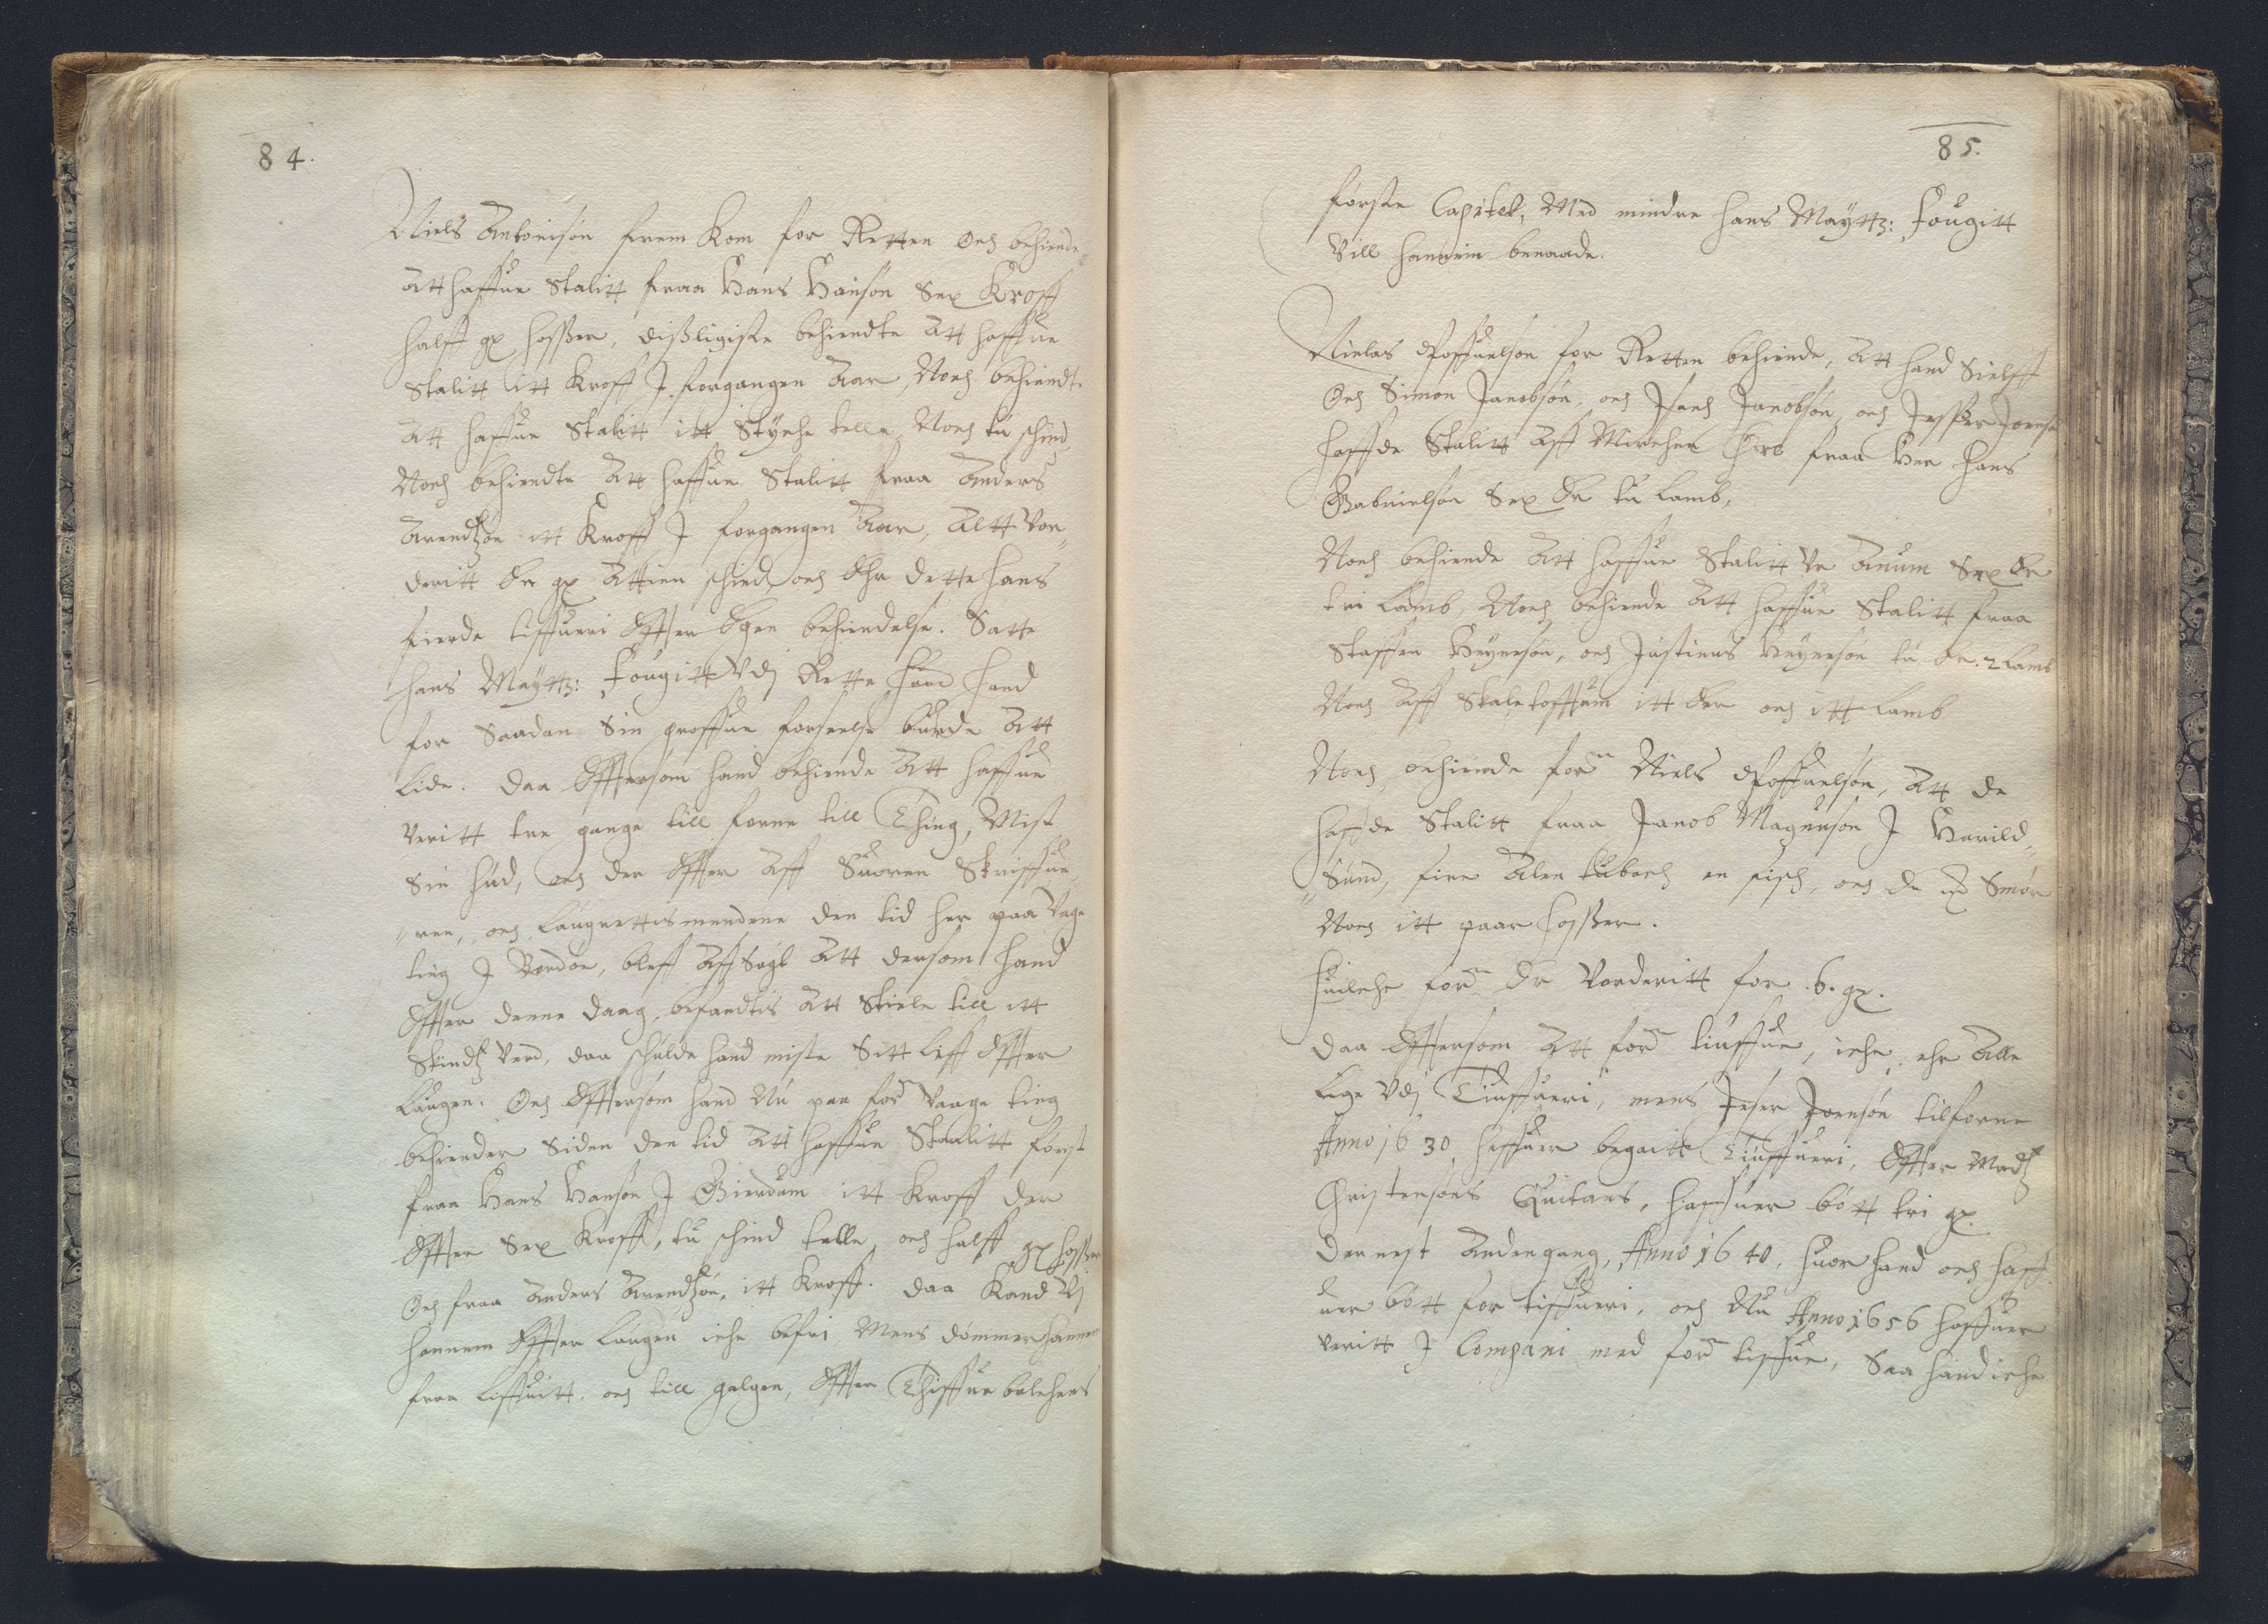 84.
Niels Antonisøn frem kom for Retten och behiende
att haffue stalitt fraa Hans Hansøn Sex Kroff
halff gx hosser, disligiste behiendte att haffue
stalitt itt kroff J forgangen aar, Noch behiendte
att haffue stalitt itt styche telle, Noch tu schind,
Noch behiendte att haffue stalitt fraa Anders
Arendtzøn itt kroff J forgangen aar, altt vor,,
deritt for gx attien schind, och Ehr dette hans
fierde tiffueri Effter Egen behiendelse. Satte
hans Maytz: fougitt vdj Rette hvad hand
for saadan sin groffue forseelse burde att
lide. Daa Effttersom hand behiende att haffue
veritt tre gange till forne till Thing, Mist
sin hud, och der Effter aff Suoren Skriffue,,
,,ren, och laugrettismendene den tid her paa vage
ting J Bordøe, bleff aff sagt att dersom hand
Effter denne daag, befandtis att stiele till itt
skindtz verd, daa schulde hand miste sitt liff Effter
laugen. Och Effttersom hand Nu paa for vaage ting
behiender siden den tid att haffue Staalitt først
fraa Hans Hansøn J Gierdum itt kroff der
Effter Sex kroff, tu schind telle, och halff gx hosser
Och fraa Anders Arendtzøn, itt kroff. Daa kand Vj
hannem Effter laugen iche befri Mens dømmer hannem
fraa liffuitt. och till galgen, Effter Thiffue balchens
85.
første Capitel, Med mindre hans Maytz: fougitt
vill hannem benaade.
Nielas Poffuelsøn for Retten behiende, att hand sielff
Och Simon Jacobsøn, och Isach Jacobsøn, och Jesper Joensøn
haffde stalitt aff Mirches fra Her Hans
Gabrielsøn Sex for tu lamb,
Noch behiende att haffue stalitt vr Anum Sex for
tri lamb, Noch behiende att haffue stalitt fraa
Staffen Heynesøn, och Justinus Heynesøn tu for. 2 lamb
Noch aff Skaletofftum itt for och itt lamb
Noch behiende for Niels Poffuelsøn, att de
haffde stalitt fraa Jacob Magnusøn J Harild,,
,,sund, fire alen tuboch en fisch, och smør
Noch itt paar hosser.
huilche for Er Vorderitt for .6. gx.
Daa Effttersom att for tiuffue, iche ehr alle
lige vdj Tiuffueri, mens Jeser Joensøn tilforne
Anno 1630 haffuer begaitt Tiuffueri, Effter Madtz
Christensøns Quitans, haffuer bøtt tri gx.
Dernest anden gang, Anno 1640, huor hand och haff,
uer bøtt for tiffueri, och Nu Anno 1656 haffuer
veritt J Compani med for tiffue, saa hand iche